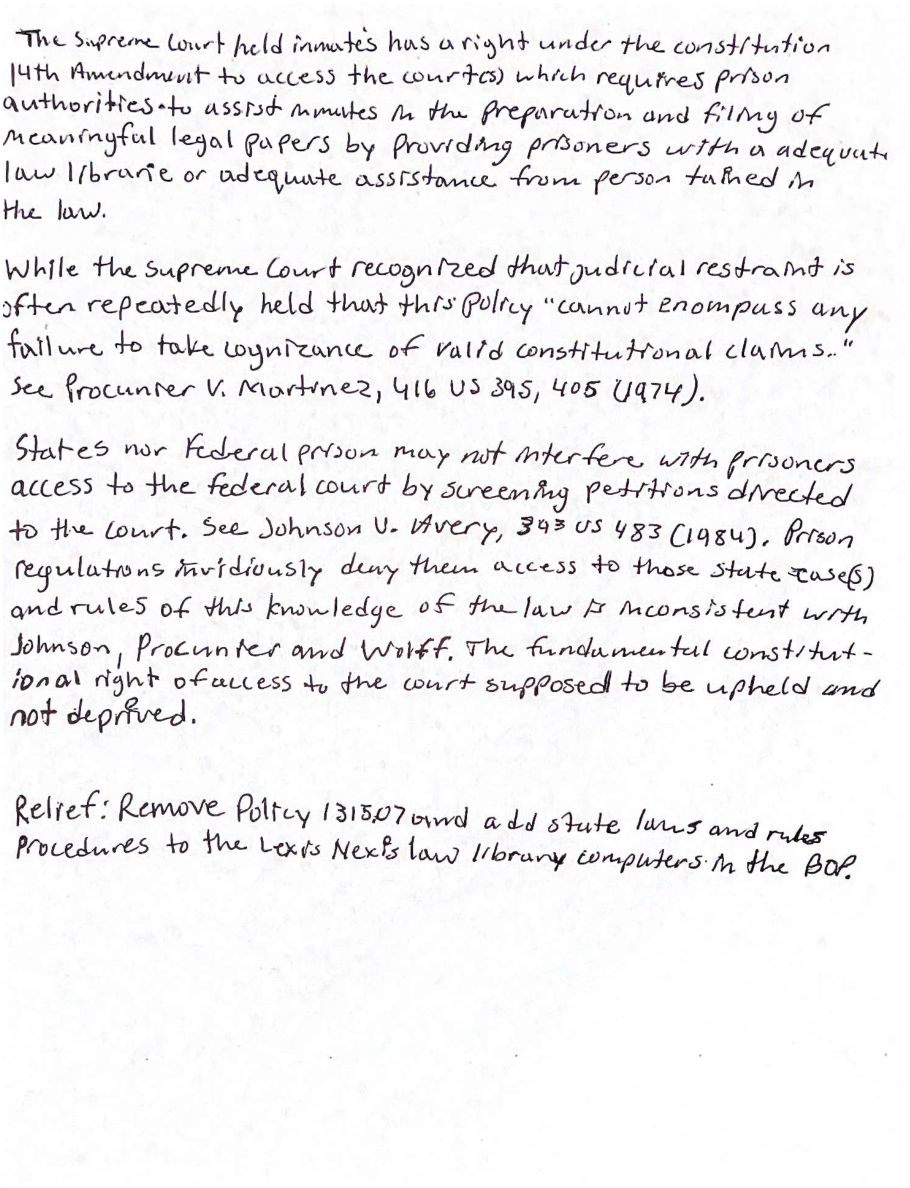 The Supreme Court held inmate's has a right under the constitution
14th Amendment to access the court(s) which requires prison
authorities to assist inmates in the preparation and filing of
meaningful legal papers by providing prisoners with a adequate
law librarie or adequate assistance from person tained in
the law.
While the Supreme Court recognized that judicial restraint is
often repeatedly held that this policy "cannot enompass any
failure to take cognizance of valid constitutional claims.."
See Procunier V. Martinez, 416 US 395, 405 (1974).
States nor Federal prison may not interfere with prisoners
access to the federal court by screening petitions directed
to the court. See Johnson V. Avery, 393 US 483 (1984). Prison
regulations invidiously deny them access to those state case(s)
and rules of this knowledge of the law is inconsistent with
Johnson, Procunier and Wolff. The fundamental constitut-
ional right of access to the court supposed to be upheld and
not deprived.
Relief: Remove Policy 1315.07 and add state laws and rules
Procedures to the Lexis Nexis law library computers in the BOP.